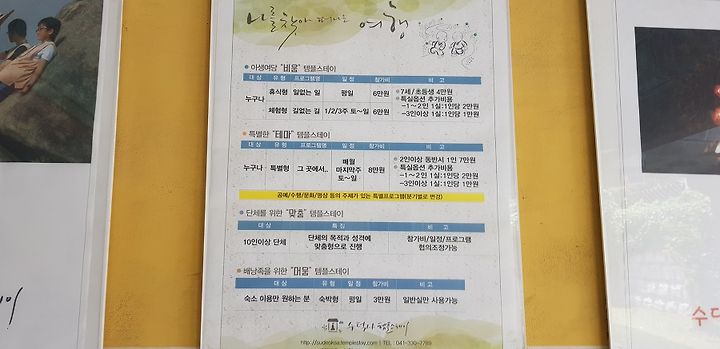 나를 찾아 떠나는 여행
아생여당 "비움" 템플스테이
대 상 유 형 프로그램명 일 정 참가비 비 고
누구나 휴식형 일없는 일 평일 6만원
체험형 길없는 길 1/2/3주 토~일 6만원
7세/초등생 4만원
특실옵션 추가비용
-1~2인 1실:1인당 2만원
-3인이상 1실:1인당 1만원
특별한 "테마" 템플스테이
대 상 유 형 프로그램명 일 정 참가비 비 고
누구나 특별형 그 곳에서.. 매월 마지막주 토~일 8만원
2인이상 동반시 1인 7만원
특실옵션 추가비용
-1~2인 1실:1인당 2만원
-3인이상 1실:1인당 1만원
공예/수행/문화/명상 등의 주제가 있는 특별프로그램(분기별로 변경)
단체를 위한 "맞춤" 템플스테이
대 상 특 징 비 고
10인이상 단체 단체의 목적과 성격에 맞춤형으로 진행 참가비/일정/프로그램 협의조정가능
배낭족을 위한 "머뭄" 템플스테이
대 상 유 형 일 정 참가비 비 고
숙소 이용만 원하는 분 숙박형 평일 3만원 일반실만 사용가능
수덕사 템플스테이
http://sudeoksa.templestay.com | TEL : 041-330-7789
수덕